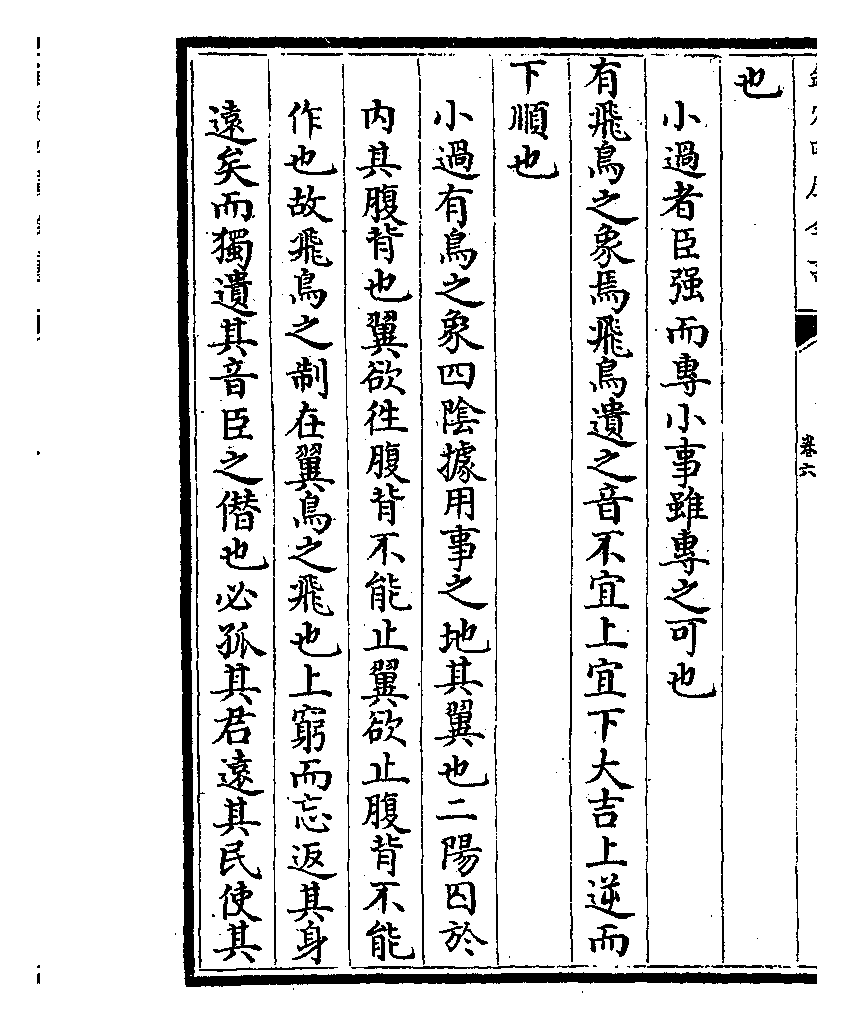 卷六
也
小過者臣强而專小事雖專之可也
有飛鳥之象焉飛鳥遺之音不宜上宜下大吉上逆而
下順也
小過有鳥之象四陰據用事之地其翼也二陽囚於
内其腹背也翼欲徃腹背不能止翼欲止腹背不能
作也故飛鳥之制在翼鳥之飛也上窮而忘返其身
遠矣而獨遺其音臣之僣也必孤其君遠其民使其